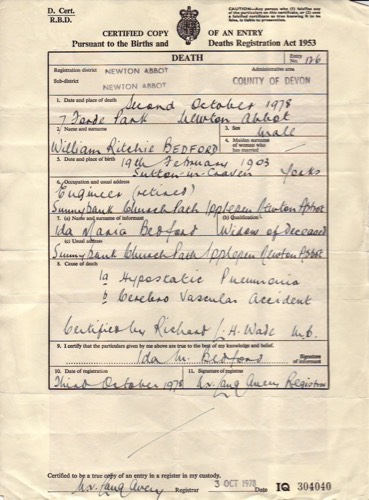 D. Cert.
R.B.D.
CAUTION—Any person who (1) falsifies any of the particulars on this certificate, or (2) uses a falsified certificate as true, knowing it to be false, is liable to prosecution.
CERTIFIED COPY OF AN ENTRY
Pursuant to the Births and Deaths Registration Act 1953
DEATH
Entry No. 126
Registration district NEWTON ABBOT
Administrative area
Sub-district NEWTON ABBOT
COUNTY OF DEVON
1. Date and place of death Second October 1978
7 Forde Park Newton Abbot
2. Name and surname
William Ritchie BEDFORD
3. Sex Male
4. Maiden surname of woman who has married
5. Date and place of birth 19th February 1903
Sutton-in-Craven Yorks
6. Occupation and usual address
Engineer (retired)
Sunnybank Church Path Ipplepen Newton Abbot
7. (a) Name and surname of informant
(b) Qualification
Ida Maria Bedford Widow of Deceased
(c) Usual address
Sunnybank Church Path Ipplepen Newton Abbot
8. Cause of death
1a Hypostatic Pneumonia
b Cerebro Vascular Accident
Certified by Richard L. H. Wade M.B.
9. I certify that the particulars given by me above are true to the best of my knowledge and belief.
Ida M. Bedford
Signature of informant
10. Date of registration
11. Signature of registrar
Third October 1978
Registrar
Certified to be a true copy of an entry in a register in my custody.
Registrar 3 OCT 1978 Date IQ 304040